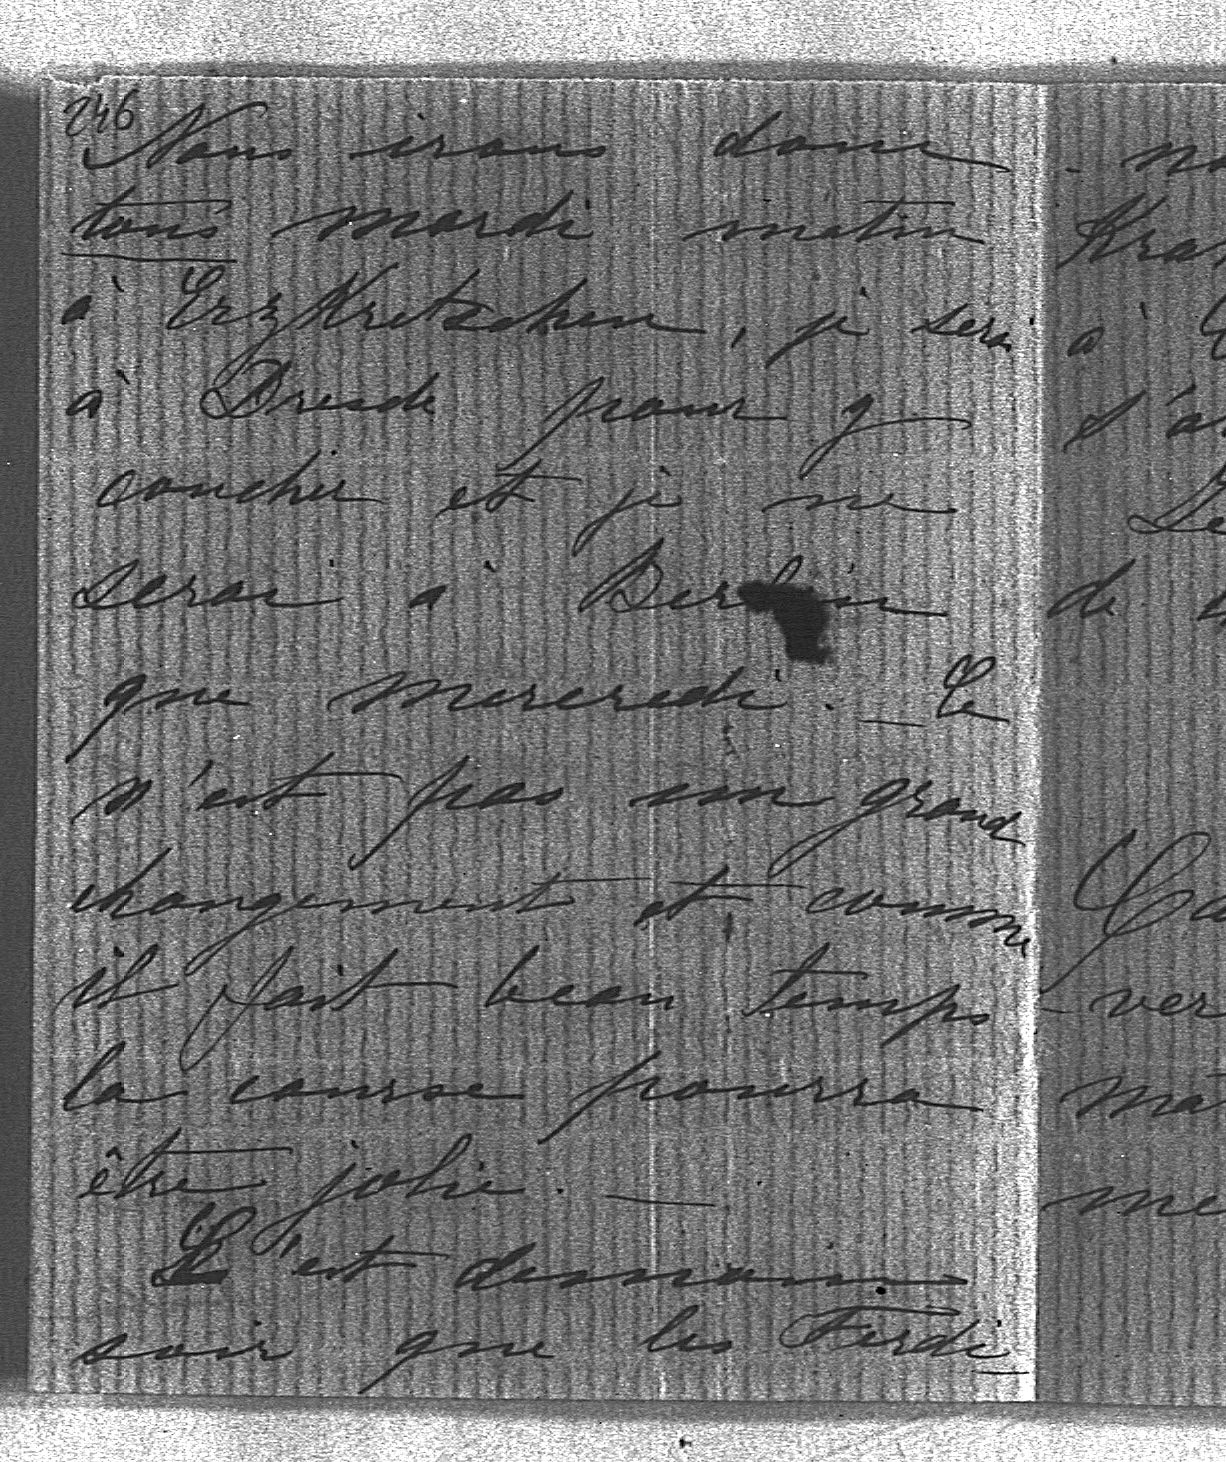 246
Nous irons donc
tous mardi matin
à Erzkretschen, je serai
à Dresde pour y
coucher et je ne
serai à Berlin
que mercredi. — Ce
n'est pas un grand
changement et comme
il fait beau temps
la course pourra
être jolie. —
C'est demain
soir que les Ferdi
- no
Kra
à
s'ar
Le
de
Ca
- ver
ma
me